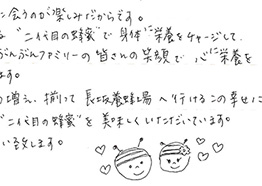 に会うのが楽しみだからです。
"二代目の蜂蜜"で身体に栄養をチャージして、
ぶんぶんファミリーの皆さんの笑顔で心に栄養を
ます。
増え、揃って長坂養蜂場へ行けるこの幸せに
"二代目の蜂蜜"を美味しくいただいています。
い致します。